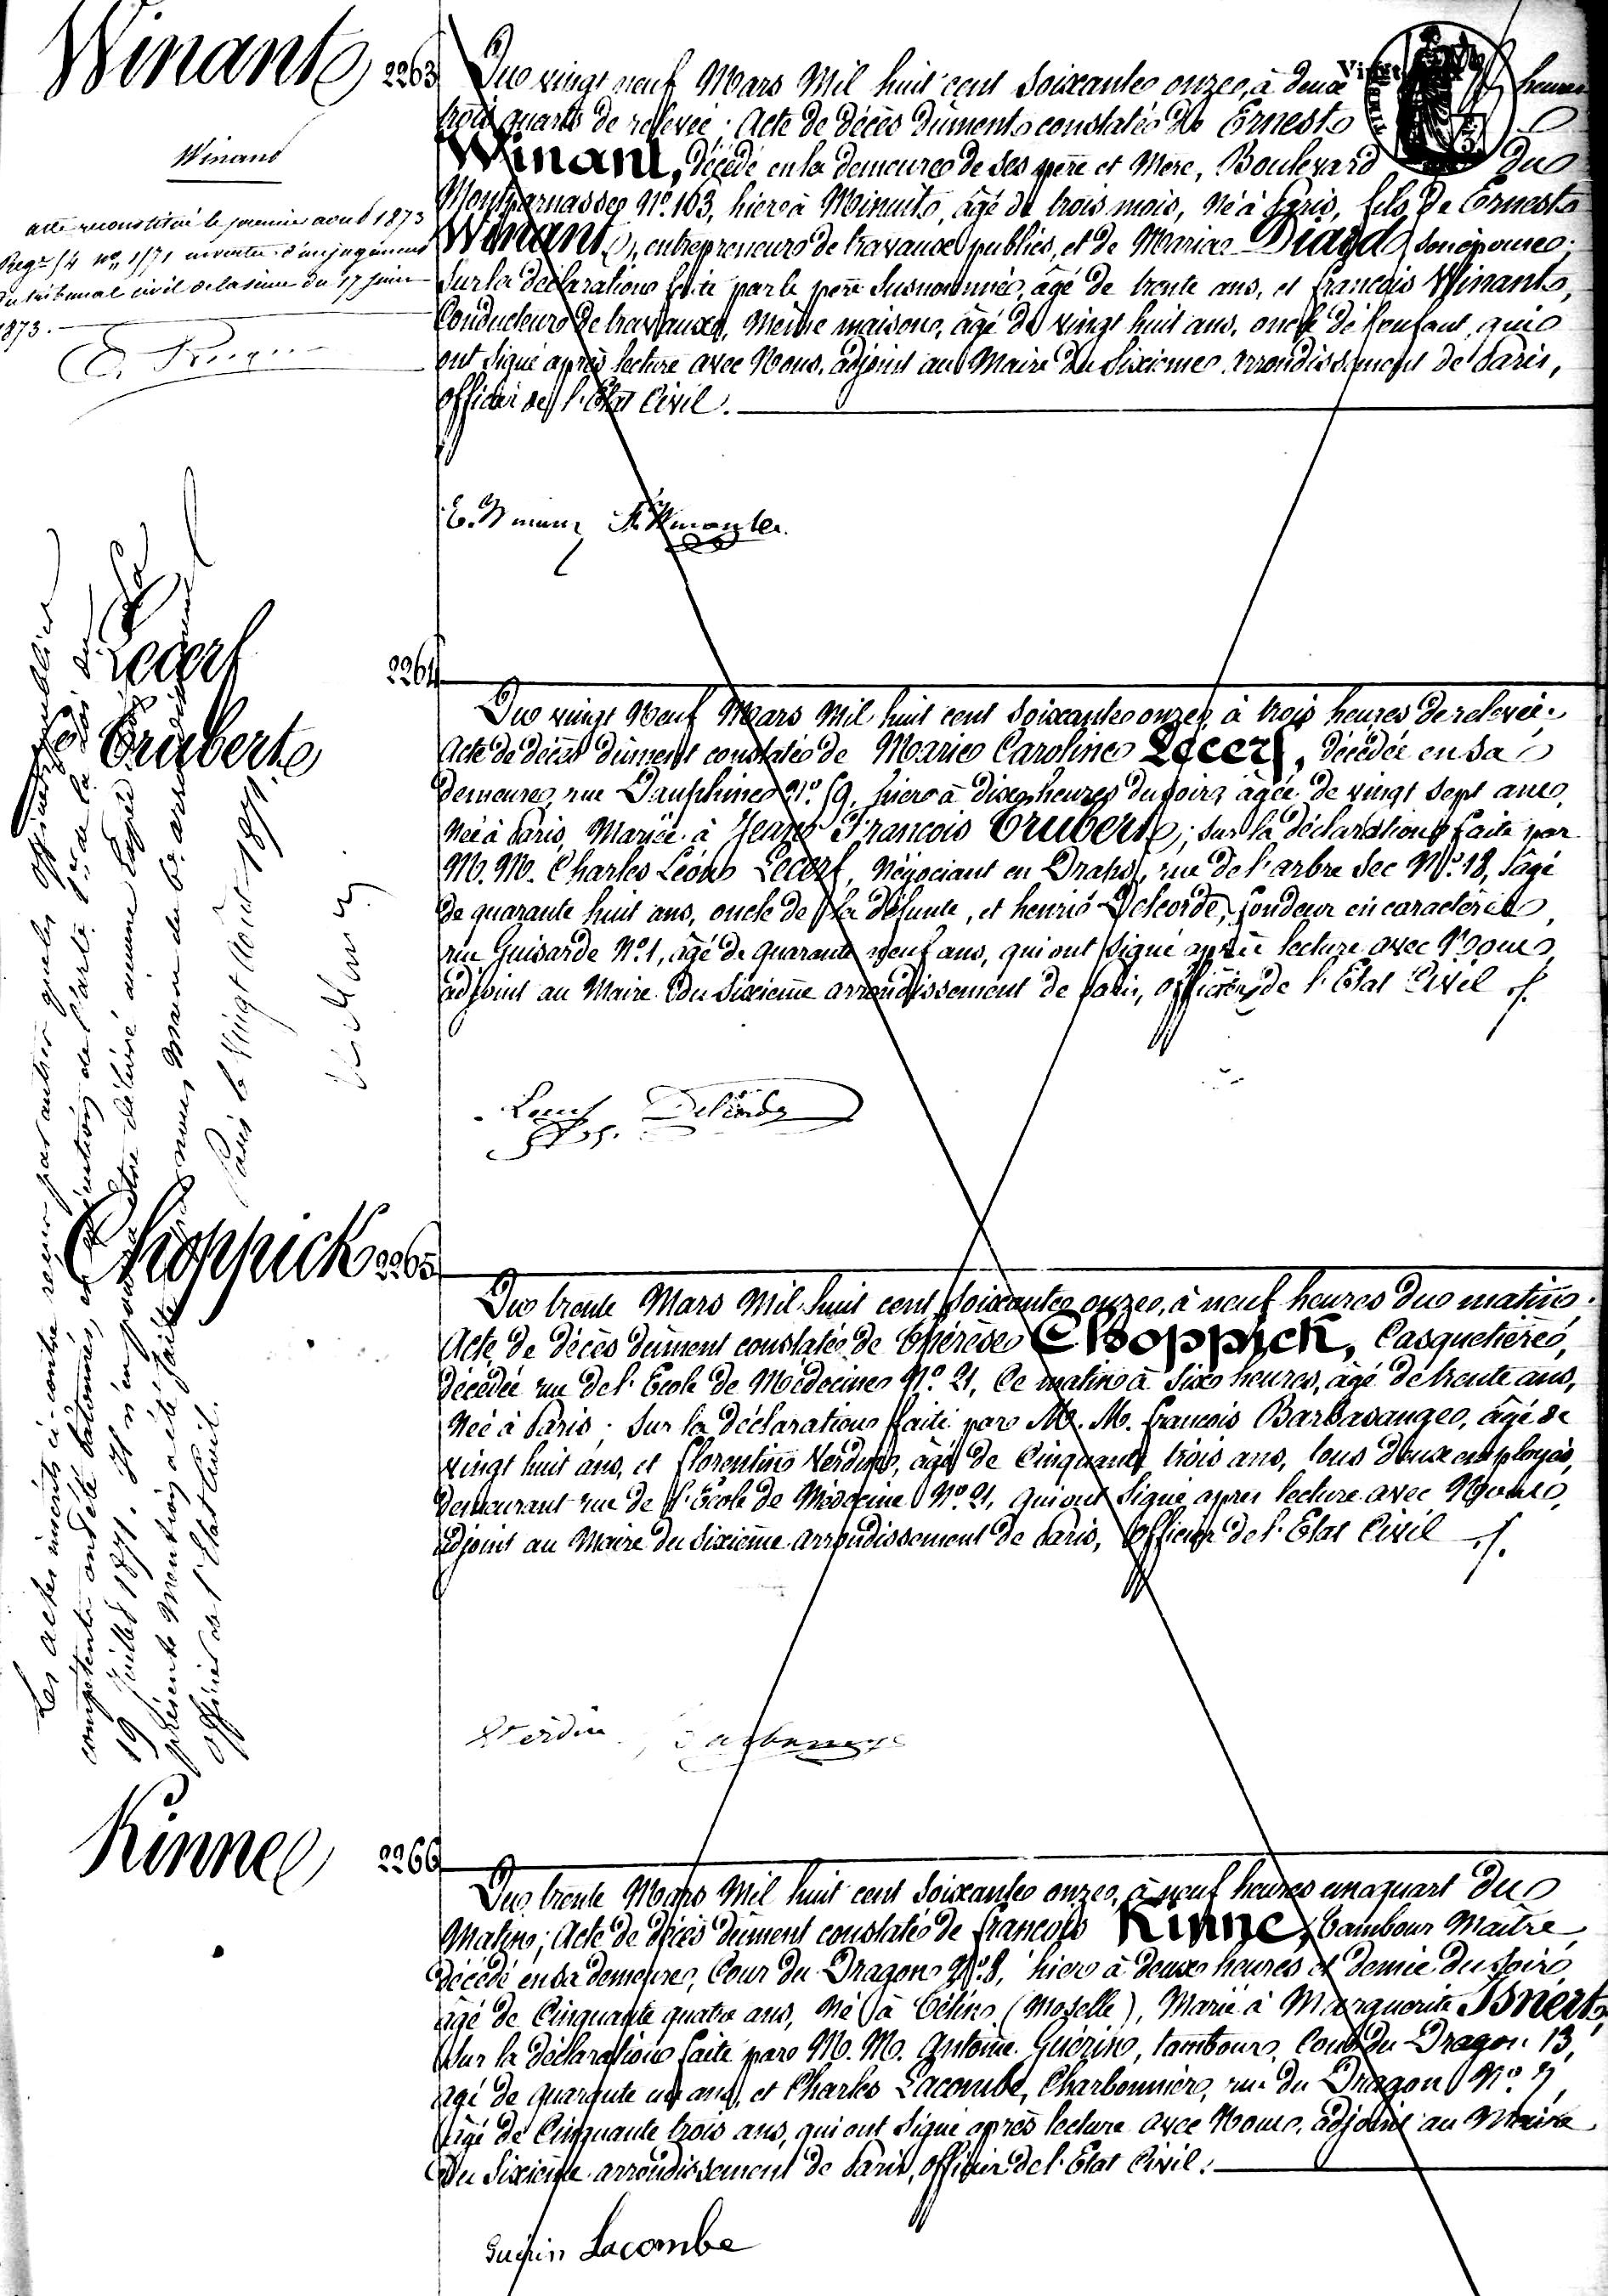 Winant
2263
Du vingt neuf Mars Mil huit cent Soixante onze, à deux heures
trois quarts de relevée ; Acte de décès dûment constaté de Ernest
Winant, décédé en la demeure de ses père et Mère, Boulevard du
Montparnasse, No. 163, hier à Minuit, âgé de trois mois, Né à Paris, fils de Ernest
Winant, entrepreneur de travaux publics, et de Marie Diard, son épouse ;
Sur la déclaration faite par le père susnommé, âgé de trente ans, et francois Winant,
Conducteur de travaux, Même maison, âgé de vingt huit ans, oncle de l'enfant, qui
ont Signé après lecture avec Nous, adjoint au Maire du Sixième arrondissement de Paris,
officier de l'Etat Civil.
Winant
acte reconstitué le premier aout 1873
Regre 14 no 1171 en vertu d'un jugement
du tribunal civil de la seine du 17 juin
1873.
E. Winant
Lecerf
Fe Trubert
2264
Du vingt Neuf Mars Mil huit cent Soixante onze, à trois heures de relevée.
Acte de décès dûment constaté de Marie Caroline Lecerf, décédée en sa
demeure, rue Dauphine No. 59, hier à dix heures du soir, âgée de vingt sept ans,
Née à Paris, Mariée à Jean François Trubert ; Sur la déclaration faite par
M. M. Charles Léon Lecerf, Négociant en Draps, rue de l'arbre Sec No. 18, âgé
de quarante huit ans, oncle de la défunte, et henri Delcorde, fondeur en caractères,
rue Guisarde No. 1, âgé de quarante neuf ans, qui ont Signé après lecture avec Nous
adjoint au Maire du Sixième arrondissement de Paris, officier de l'Etat Civil
Lecerf
Les actes inscrits ci-contre reçus par autres que les officiers publics
compétents ont été bâtonnés, en exécution de l'article 1er de la loi du
19 Juillet 1871. Il n'en pourra être délivré aucune Expédition. La
présente Mention a été faite par nous, Maire du 6e arrondissement
officier de l'Etat Civil.
Paris le Vingt Août 1871.
Choppick
2265
Du trente Mars Mil huit cent Soixante onze, à neuf heures du matin.
Acte de décès dûment constaté de Thérèse Choppick, Casquetière,
décédée rue de l'Ecole de Médecine No. 21, Ce matin à Six heures, âgé de trente ans,
Née à Paris. Sur la déclaration faite par M. M. francois Barbasange, âgé de
vingt huit ans, et florentin Verdin, âgé de Cinquante trois ans, tous deux employés,
demeurant rue de l'Ecole de Médecine No. 21, qui ont Signé après lecture avec Nous,
adjoint au Maire du Sixième arrondissement de Paris, officier de l'Etat Civil
Verdin
Kinne
2266
Du trente Mars Mil huit cent Soixante onze, à neuf heures un quart du
Matin ; Acte de décès dûment constaté de francois Kinne, tambour Maître,
décédé en sa demeure, Cour du Dragon No. 8, hier à deux heures et demie du soir,
âgé de Cinquante quatre ans, Né à (Moselle), Marié à Marguerite Isnert,
Sur la déclaration faite par M. M. Antoine Guérin, tambour, Cour du Dragon 13,
âgé de quarante un ans, et Charles Lacombe, Charbonnier, rue du Dragon No. 7,
âgé de Cinquante trois ans, qui ont Signé après lecture avec Nous, adjoint au Maire
du Sixième arrondissement de Paris, officier de l'Etat Civil.
Guérin Lacombe